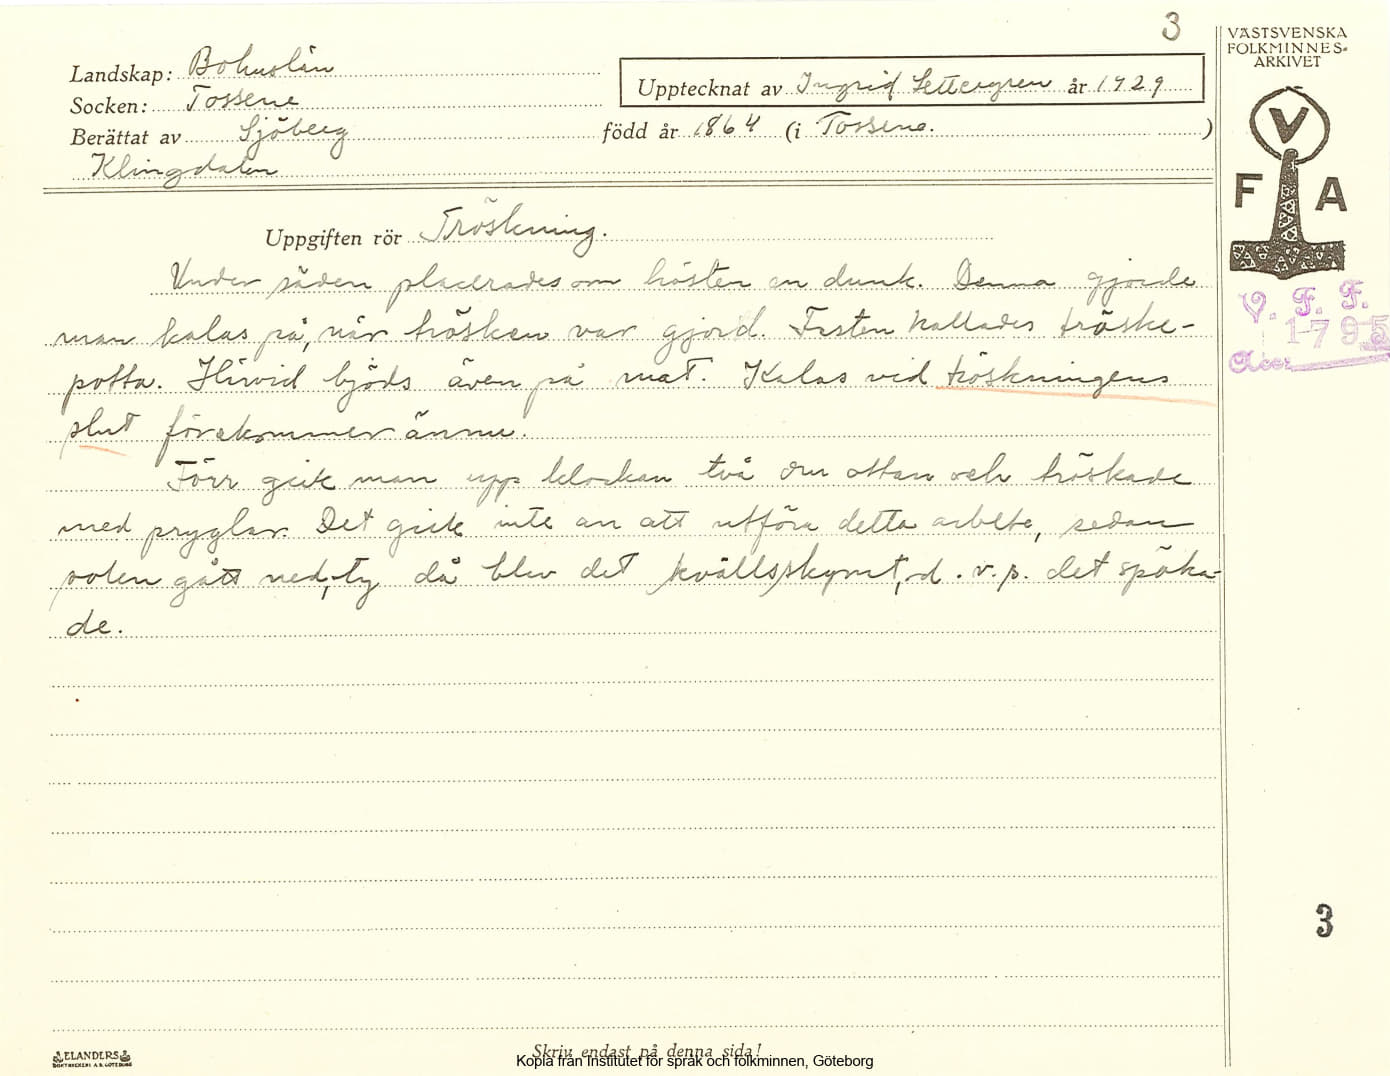 3
VÄSTSVENSKA
FOLKMINNES-
ARKIVET
Landskap: Bohuslän
Upptecknat av Ingrid Settergren år 1929
Socken: Tossene
Berättat av Sjöberg född år 1864 (i Tossene. )
Klingdalen
V
F A
Uppgiften rör Tröskning.
Under säden placerades om hösten en dunk. Denna gjorde
man kalas på, när trösken var gjord. Festen kallades tröske-
potta. Härvid bjöds även på mat. Kalas vid tröskningens
slut förekommer ännu.
V. F. F.
1795
Acc:
Förr gick man upp klockan två om ottan och tröskade
med pryglar. Det gick inte an att utföra detta arbete, sedan
solen gått ned, ty då blev det kvällsskymt, d. v. s. det spöka-
de.
3
ELANDERS
BOKTRYCKERI A.B. GÖTEBORG
Skriv endast på denna sida!
Kopia från Institutet för språk och folkminnen, Göteborg